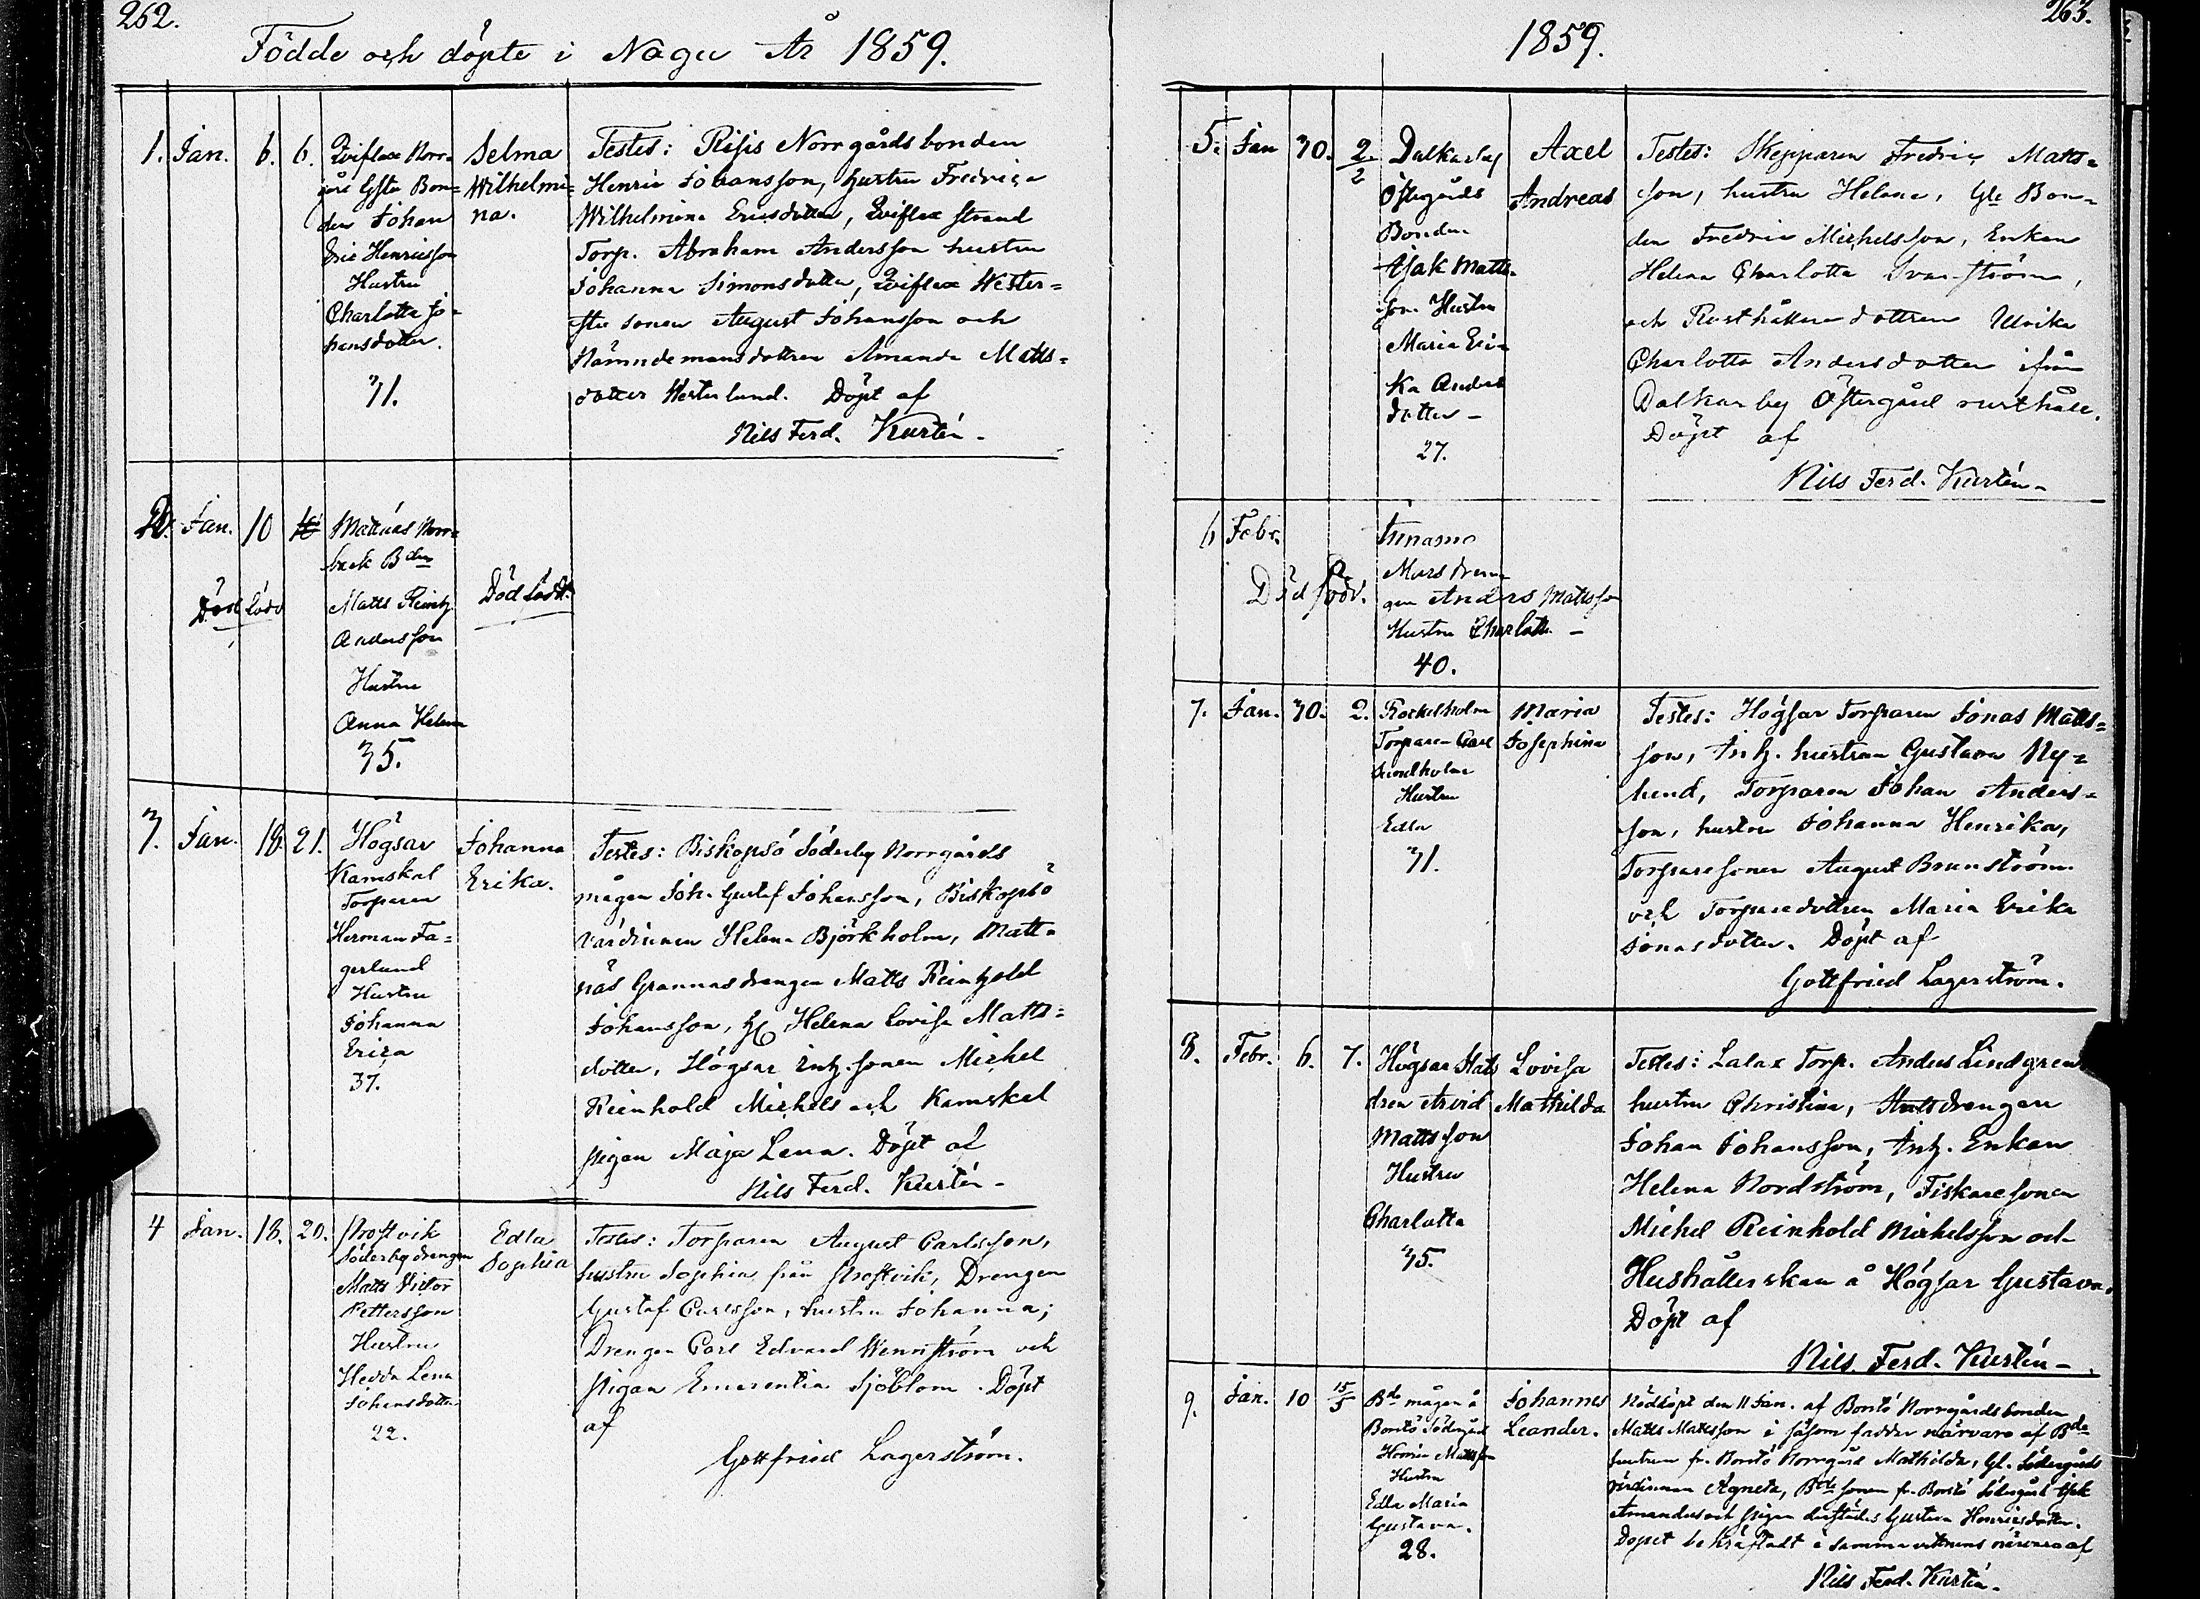 262.
Födde och döpte i Nagu År 1859.
1. Jan. 6. 6.
Norr-
Bon-
den Johan
Eric Henricsson
Hustru
Charlotta Jo-
hansdotter.
31.
Selma
Wilhelmi-
na.
Testes: Norrgårds bonden
Henric Johansson, hustru Fredrica
Wilhelmina Ericsdotter, strand
Torp. Abraham Andersson hustru
Johanna Simonsdotter, Wester-
sonen August Johansson och
Nämndemansdottren Amanda Matts-
dotter Westerlund. Döpt af
Nils Ferd. Kurtén.
2. Jan. 10
Dödfödd
Mattnäs Norr-
back Bden
Matts Reinh.
Andersson
Hustru
Anna Helena
35.
Dödfödt.
3. Jan. 18. 21.
Högsar
Kamskal
Torparen
Herman Fa-
gerlund
Hustru
Johanna
Erica
37.
Johanna
Erika.
Testes: Biskopsö Söderby Norrgårds
mågen Joh. Gustaf Johansson, Biskopsö
värdinnan Helena Björkholm, Matt-
näs Grannasdrengen Matts Reinhold
Johansson, Helena Lovisa Matts-
dotter, Högsar inh. sonen Michel
Reinhold Michels och Kamskal
pigan Maja Lena. Döpt af
Nils Ferd. Kurtén.
4 Jan. 18. 20.
Prostvik
Söderby drengen
Matts Victor
Pettersson
Hustru
Hedda Lena
Johansdotter
22.
Edla
Sophia
Testes: Torparen August Carlsson,
hustru Sophia från Prostvik, Drengen
Gustaf Carlsson, hustru Johanna;
Drengen Carl Edvard Wennström och
pigan Emerentia Sjöblom. Döpt
af
Gottfried Lagerström.
263.
1859.
5. Jan 30. 2/2
Dalkarby
Östergårds
Bonden
Isak Matts-
son Hustru
Maria Eri-
ka Anders
dotter -
27.
Axel
Andreas
Testes: Skepparen Fredric Matts-
son, hustru Helena, Gle Bon-
den Fredric Michelsson, Enkan
Helena Charlotta Svanström,
och Rusthållaredottren Ulrika
Charlotta Andersdotter ifrån
Dalkarby Östergård rusthåll.
Döpt af
Nils Ferd. Kurtén-
6 Febr.
Död född.
Anders Mattsson
Hustru Charlotta -
40.
7. Jan. 30. 2.
Rockelholm
Torparen Carl
Hustru
Edla
31.
Maria
Josephina
Testes: Högsar Torparen Jonas Matts-
son, Inh. hustrun Gustava Ny-
lund, Torparen Johan Anders-
son, hustru Johanna Henrika,
Torparesonen August Brunström
och Torparedottren Maria Erika
Jonasdotter. Döpt af
Gottfried Lagerström.
8. Febr. 6. 7.
Högsar Stats
dren Arvid
Mattsson
Hustru
Charlotta
35.
Lovisa
Mathilda
Testes: Lalax Torp. Anders Lindgren
hustru Christina, Statsdrengen
Johan Johansson, Inh. Enkan
Helena Nordström, Fiskaresonen
Michel Reinhold Michelsson och
Hushållerskan å Högsar Gustava.
Döpt af
Nils Ferd. Kurtén-
9. Jan. 10 15/5
Bd mågen å
Borstö Södergård
Henric Mattsson
Hustru
Edla Maria
Gustava.
28.
Johannes
Leander.
Nöddöpt den 11 Jan. af Borstö Norrgårdsbonden
Matts Mattsson i såsom faddrar närvaro af Bde
hustrun fr. Borstö Norrgård Mathilda, Gl. Södergårds
värdinnan Agneta, Bdesonen fr. Borstö Södergård Isak
Amandus och pigan derstädes Gustava Henricsdotter.
Dopet bekräftadt i samma vittnens närvaro af
Nils Ferd. Kurtén.